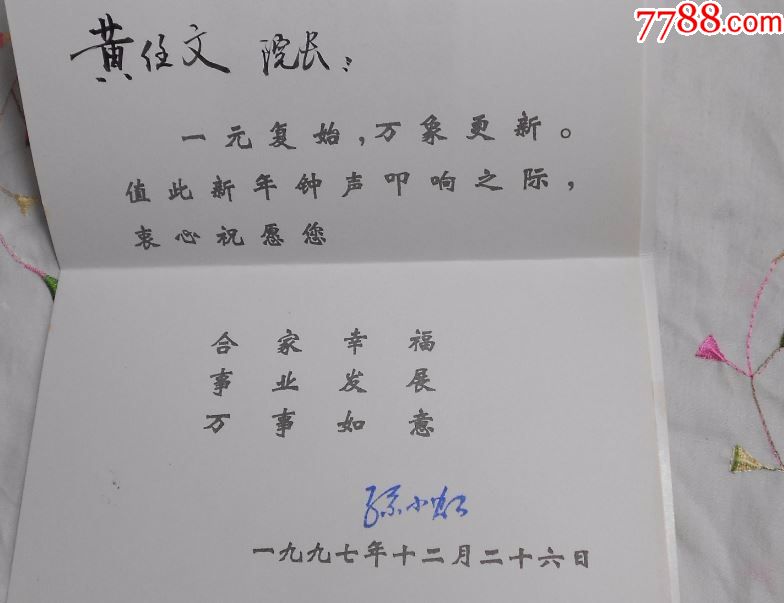 7788.com
黄任文 院长：
一元复始，万象更新。
值此新年钟声叩响之际，
衷心祝愿您
合家幸福
事业发展
万事如意
孙小虹
一九九七年十二月二十六日